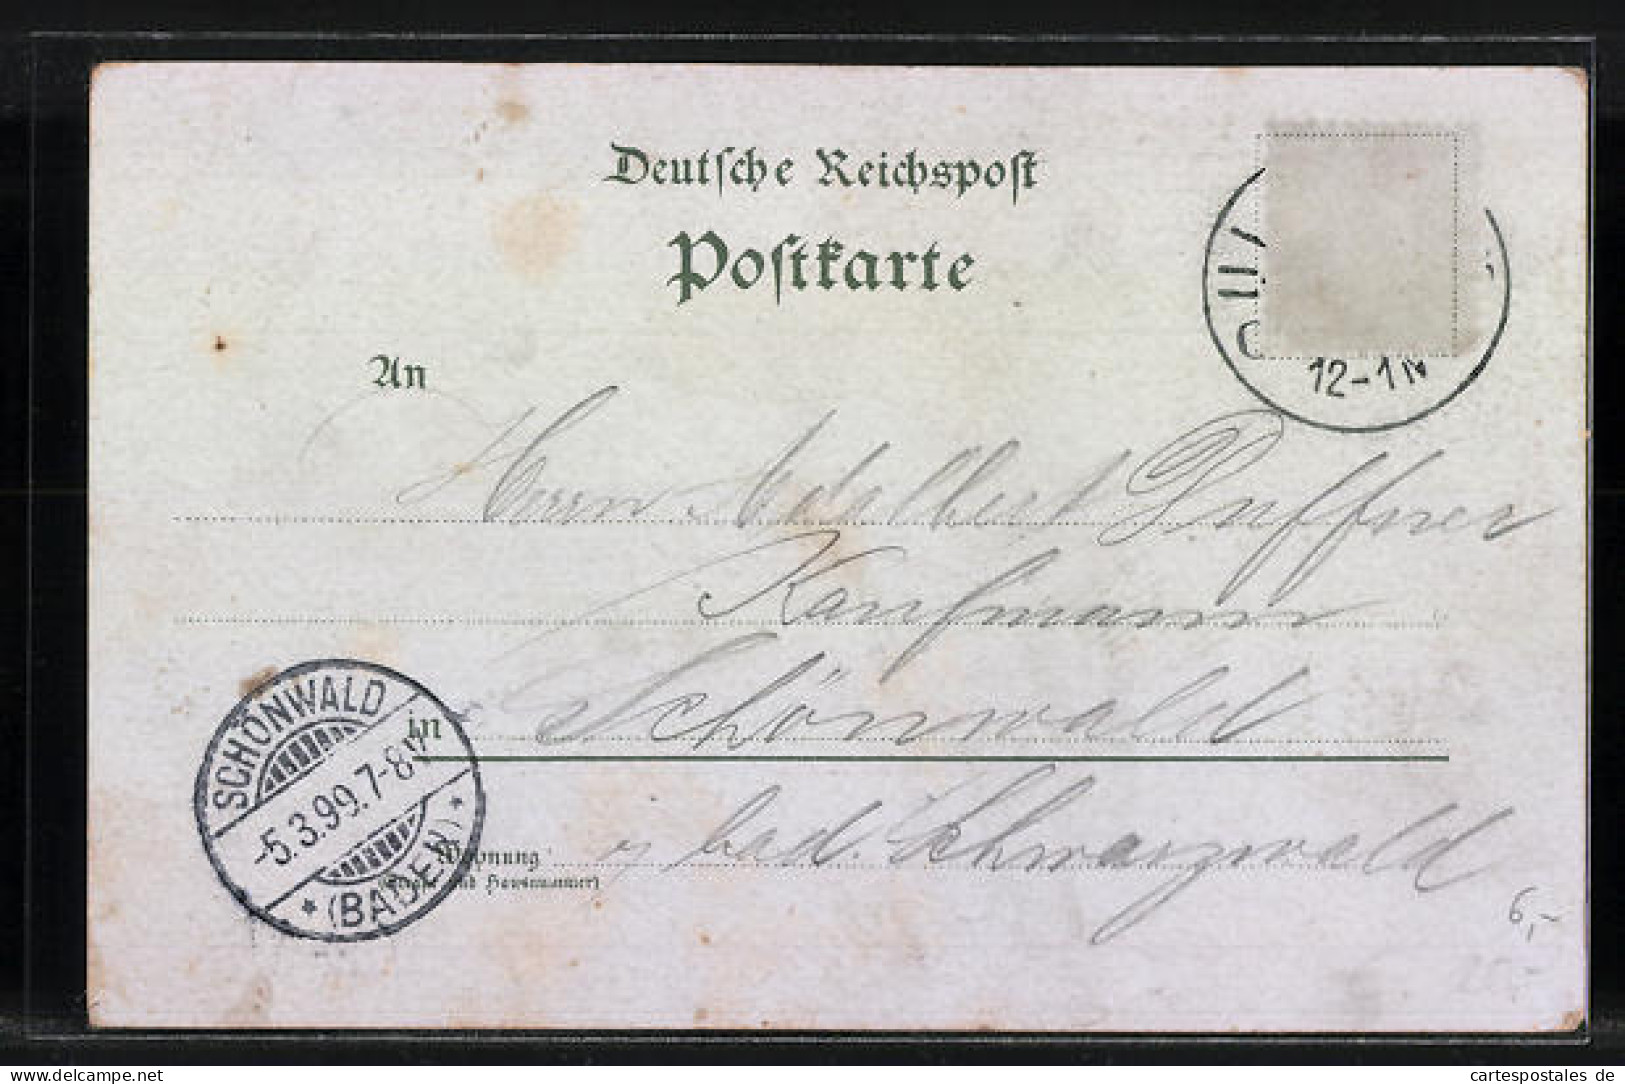 Deutsche Reichspost
Postkarte
12-1N
An
Herrn Adalbert Duffner
Kaufmann
in Schönwald
SCHÖNWALD
-5.3.99.7-8V
* (BADEN) *
Wohnung
(Straße und Hausnummer)
bad. Schwarzwald
6,-
25,-
delcampe.net
cartespostales de